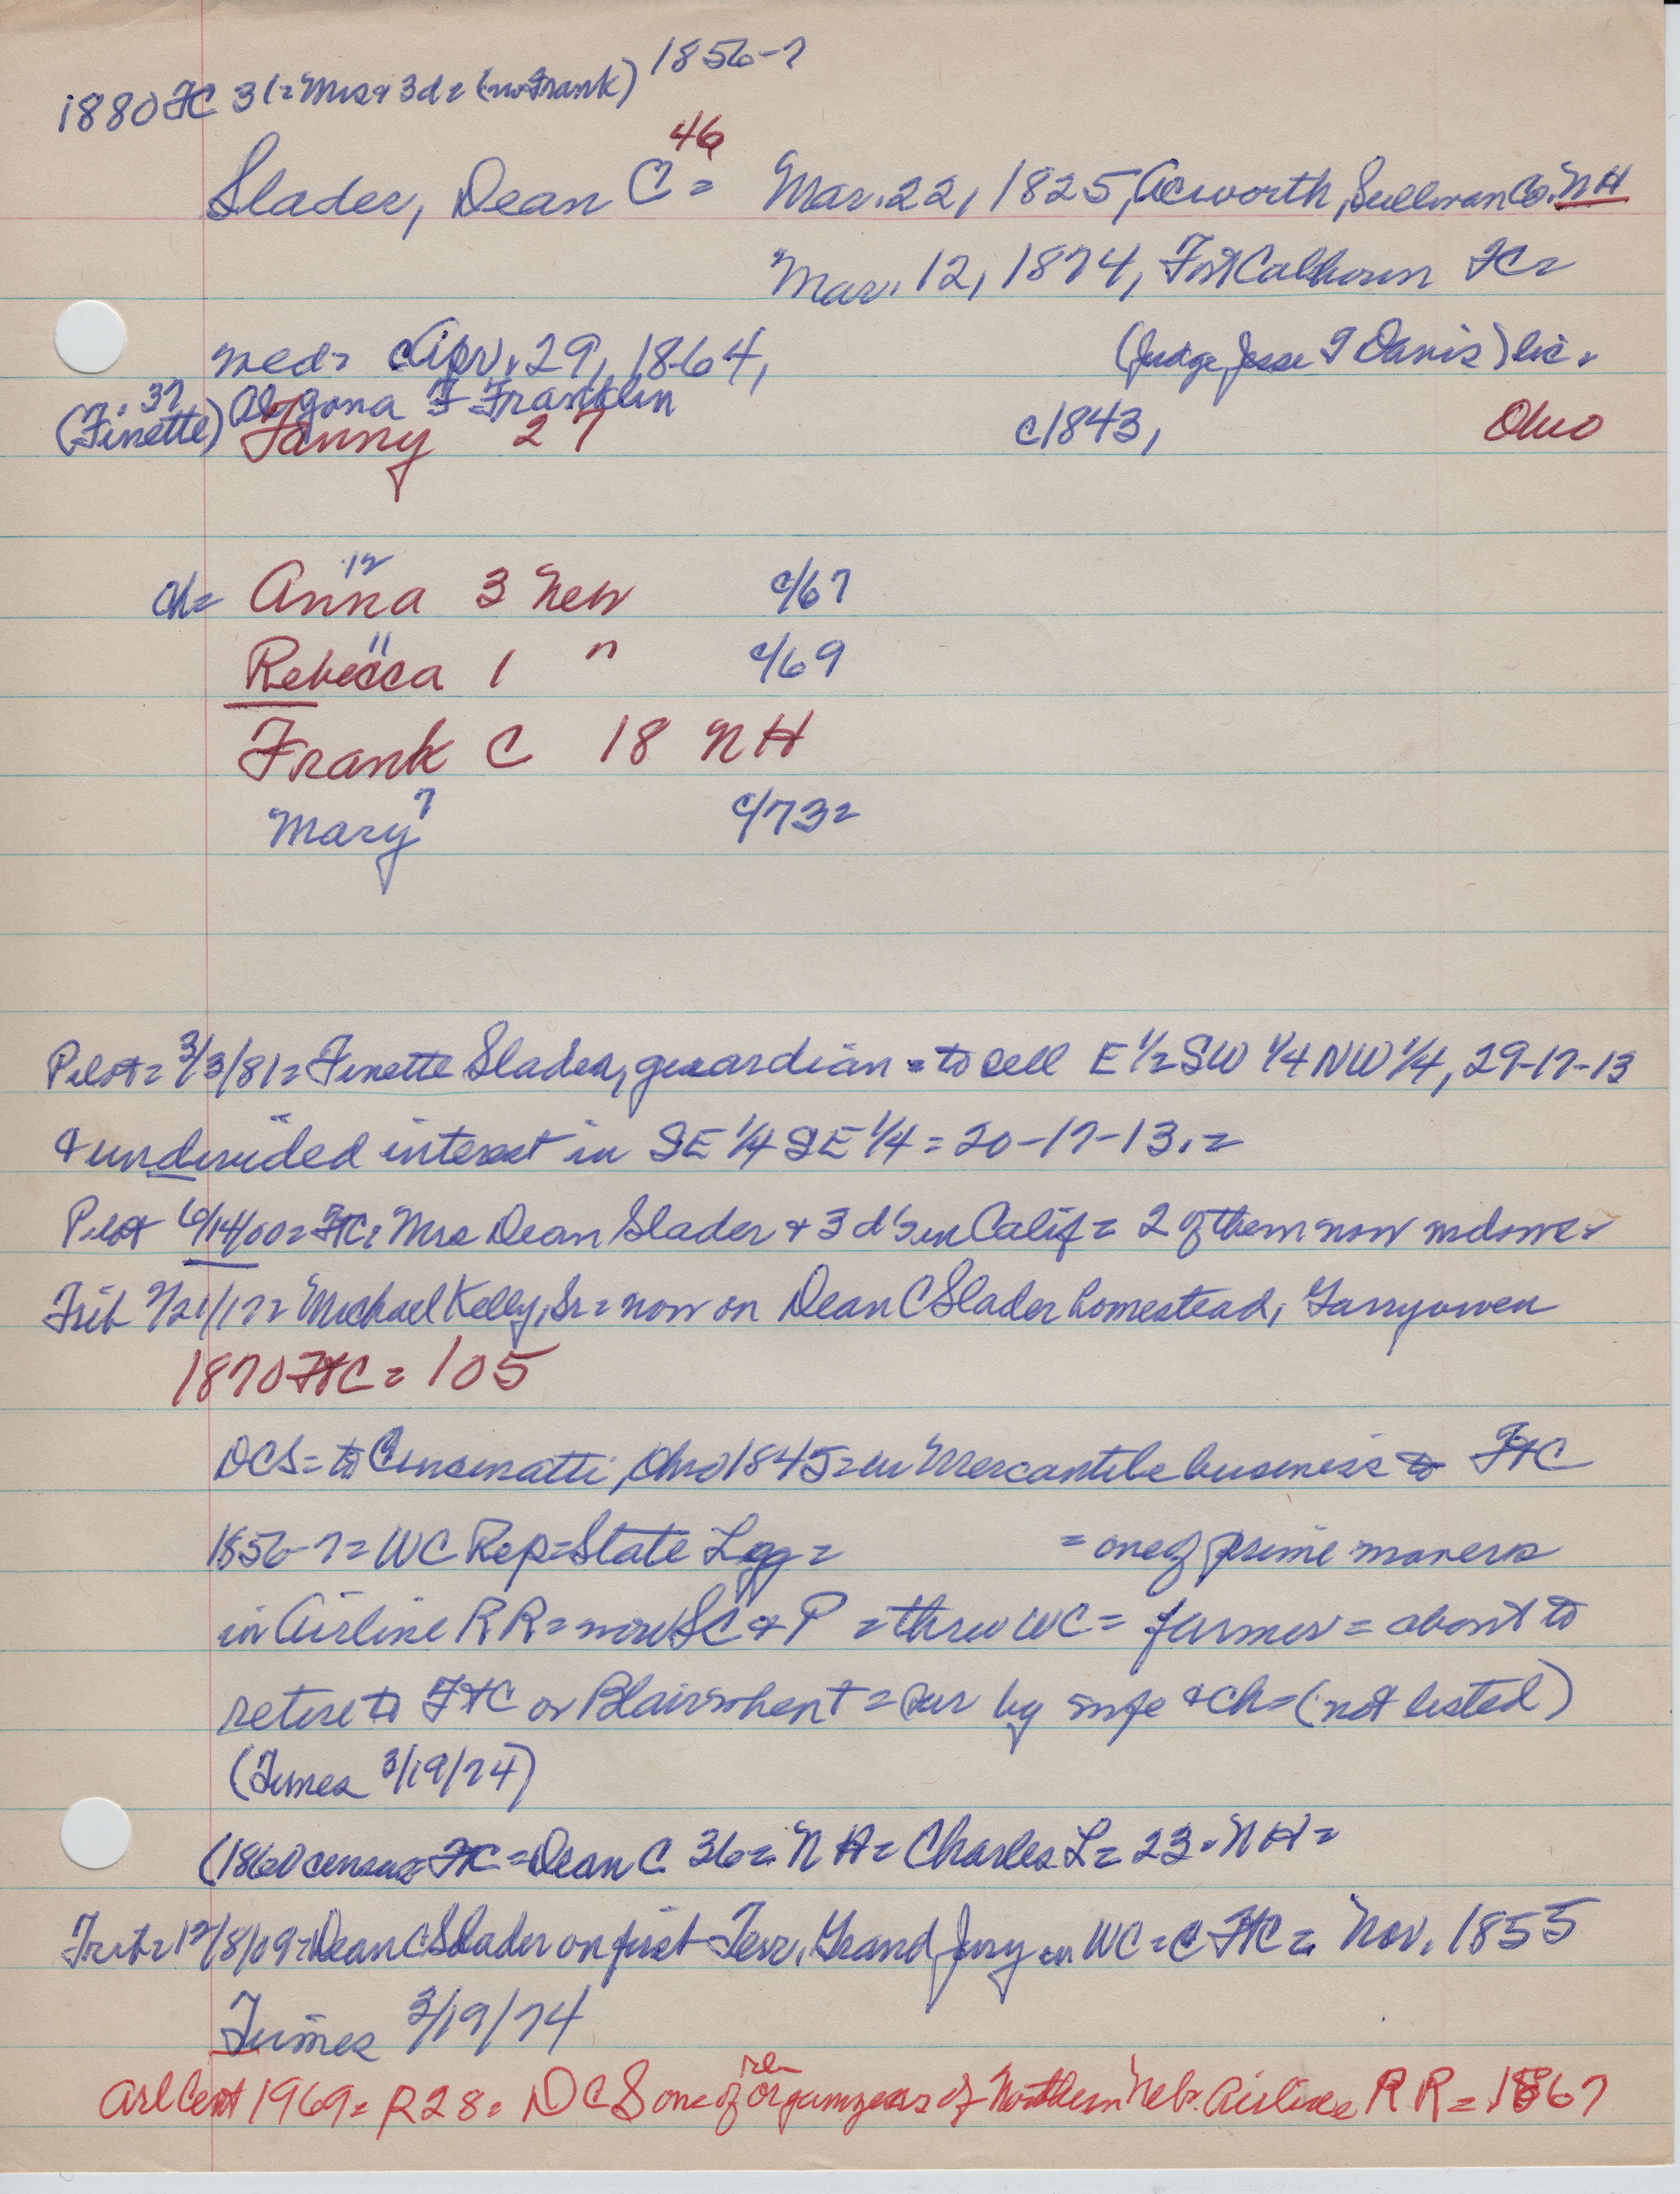 1856-7
1880 FtC 31 = Mrs & 3d = (no Frank)
46
Slader, Dean C = Mar. 22, 1825, Acworth, Sullivan Co. NH
Mar. 12, 1874, Fort Calhoun FC =
med = Apr. 29, 1864, (Judge Jesse T Davis) lic.
37 Algona F Franklin
(Finette) Fanny 27 c1843, Ohio
12
ch = Anna 3 Neb c/67
11
Rebecca 1 " c/69
Frank C 18 NH
7
Mary c/73 =
Pilot = 3/3/81 = Finette Slader, guardian = to sell E 1/2 SW 1/4 NW 1/4, 29-17-13
& undivided interest in SE 1/4 SE 1/4 = 20-17-13. =
Pilot 6/14/00 = FtC: Mrs Dean Slader & 3 d's in Calif = 2 of them now widows.
Trib 9/21/17 = Michael Kelly, Sr = now on Dean C Slader homestead, Garryowen
1870 FtC = 105
DCS = to Cincinatti, Ohio 1845 = in Mercantile business to FtC
1856-7 = WC Rep = State Leg = = one of prime movers
in Airline RR = now SC & P = thru WC = farmer = about to
retire to FtC or Blair when t = sur by wife & ch = (not listed)
(Times 3/19/74)
(1860 census FtC = Dean C 36 = NH = Charles L = 23 = NH =
Trib = 12/8/09 = Dean C Slader on first Terr. Grand Jury in WC = c FtC = Nov. 1855
Times 3/19/74
re
Arl Cent 1969 = P28 = DCS one of organizers of Northern Neb. Airline RR = 1867